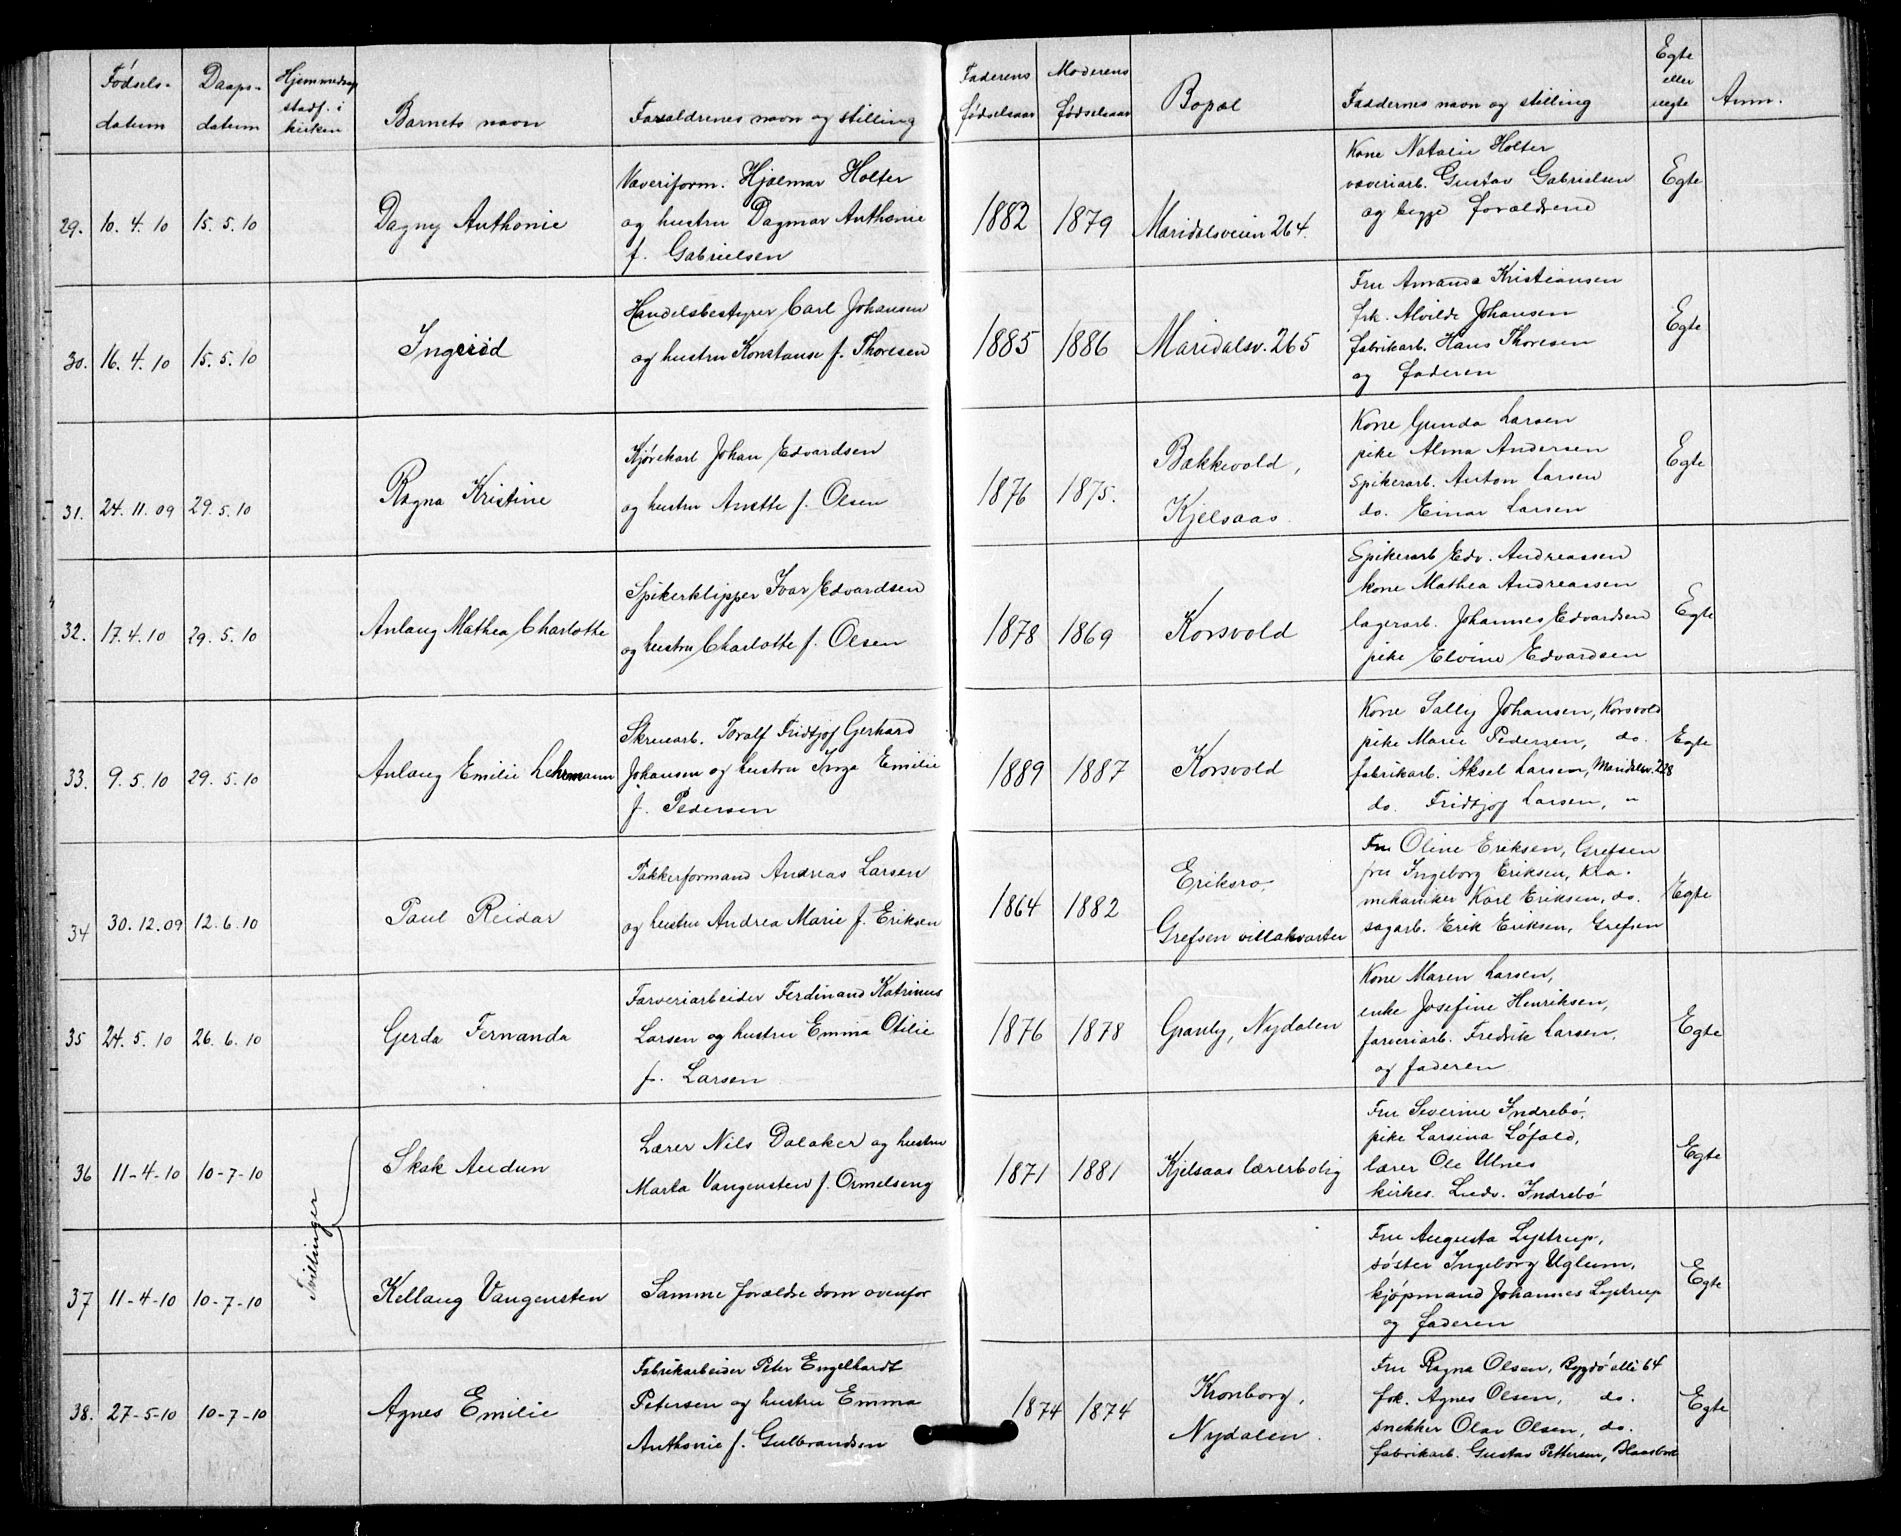 Fødsels-
datum
Daaps-
datum
Hjemmedaap
stadf. i
kirken
Barnets navn
Forældrenes navn og stilling
Faderens
fødselsaar
Moderens
fødselsaar
Bopæl
Faddernes navn og stilling
Egte
eller
uegte
Anm.
29.
10. 4. 10
15. 5. 10
Dagny Anthonie
Væveriform. Hjalmar Holter
og hustru Dagmar Anthonie
f. Gabrielsen
1882
1879
Maridalsveien 264.
Kone Natalie Holter
væveriarb. Gustav Gabrielsen
og begge forældrene
Egte
30.
16. 4. 10
15. 5. 10
Ingerid
Handelsbestyrer Carl Johansen
og hustru Konstanse f. Thoresen
1885
1886
Maridalsv. 265
Fru Amanda Kristiansen
frk. Alvilde Johansen
fabrikarb. Hans Thoresen
og faderen
Egte
31.
24. 11. 09
29. 5. 10
Ragna Kristine
Kjørekarl Johan Edvardsen
og hustru Anette f. Olsen
1876
1875.
Bakkevold,
Kjelsaas.
Kone Gunda Larsen
pike Alma Andersen
spikerarb. Anton Larsen
do. Einar Larsen
Egte
32.
17. 4. 10
29. 5. 10
Anlaug Mathea Charlotte
Spikerklipper Ivar Edvardsen
og hustru Charlotte f. Olsen
1878
1869
Korsvold
Spikerarb Edv. Andreassen
kone Mathea Andreassen
lagerarb. Johannes Edvardsen
pike Elvine Edvardsen
Egte
33.
9. 5. 10
29. 5. 10
Anlaug Emilie Lehrmann
Skruearb. Toralf Fridtjof Gerhard
Johansen og hustru Inga Emilie
f. Pedersen
1889
1887
Korsvold
Kone Sally Johansen, Korsvold
pike Marie Pedersen, do.
fabrikarb. Aksel Larsen, Maridalsv. 228
do. Fridtjof Larsen, "
Egte
34
30. 12. 09
12. 6. 10
Paul Reidar
Pakkerformand Andreas Larsen
og hustru Andrea Marie f. Eriksen
1864
1882
Eriksro,
Grefsen villakvarter
Fru Oline Eriksen, Grefsen
fru Ingeborg Eriksen, Kra.
mekaniker Karl Eriksen, do.
sagarb. Erik Eriksen, Grefsen
Egte
35
24. 5. 10
26. 6. 10
Gerda Fernanda
Farveriarbeider Ferdinand Katrinus
Larsen og hustru Emma Otilie
f. Larsen
1876
1878
Granly, Nydalen
Kone Maren Larsen,
enke Josefine Henriksen,
farveriarb. Fredrik Larsen,
og faderen
Egte
36
11-4-10
10-7-10
Tvillinger
Skak Audun
Lærer Nils Dalaker og hustru
Marta Vangensten f. Ormelseng
1871
1881
Kjelsaas lærerbolig
Fru Severine Indrebø,
pike Larsina Løfald,
lærer Ole Ulnes
kirkes. Ludv. Indrebø
Egte
37
11-4-10
10-7-10
Kellaug Vangensten
Samme forældre som ovenfor
Fru Augusta Lystrup,
søster Ingeborg Uglum,
kjøpmand Johannes Lystrup
og faderen
Egte
38.
27-5-10
10-7-10
Agnes Emilie
Fabrikarbeider Peter Engelhardt
Petersen og hustru Emma
Anthonie f. Gulbrandsen
1874
1874
Kronborg,
Nydalen.
Fru Ragna Olsen, Bygdø allé 64
frk. Agnes Olsen, do.
snekker Olav Olsen, do.
fabrikarb. Gustav Pettersen,
Egte